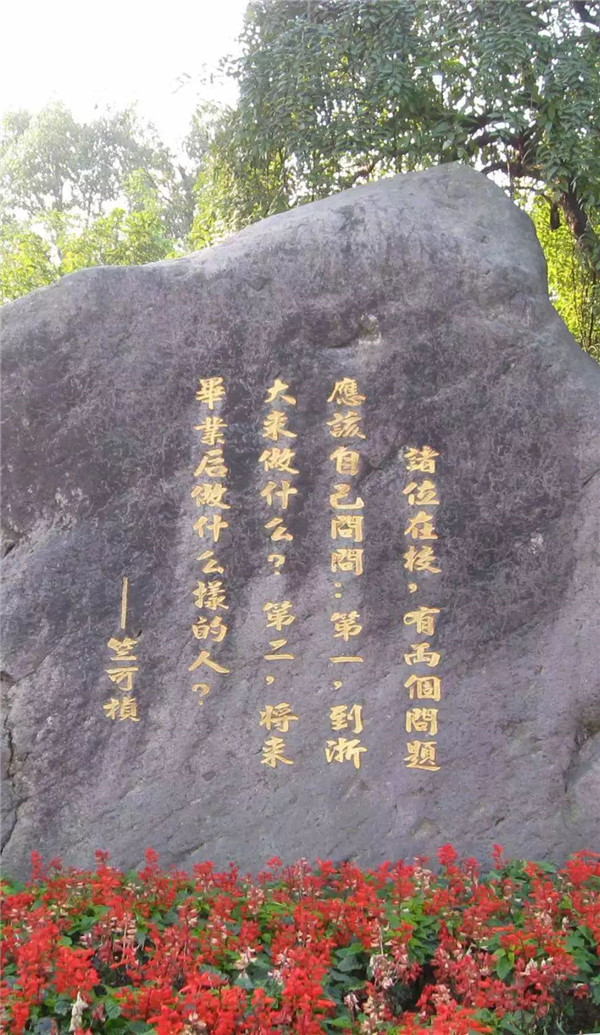 諸位在校，有兩個問題
應該自己問問：第一，到浙
大來做什么？第二，将来
畢業后做什么樣的人？
——竺可楨